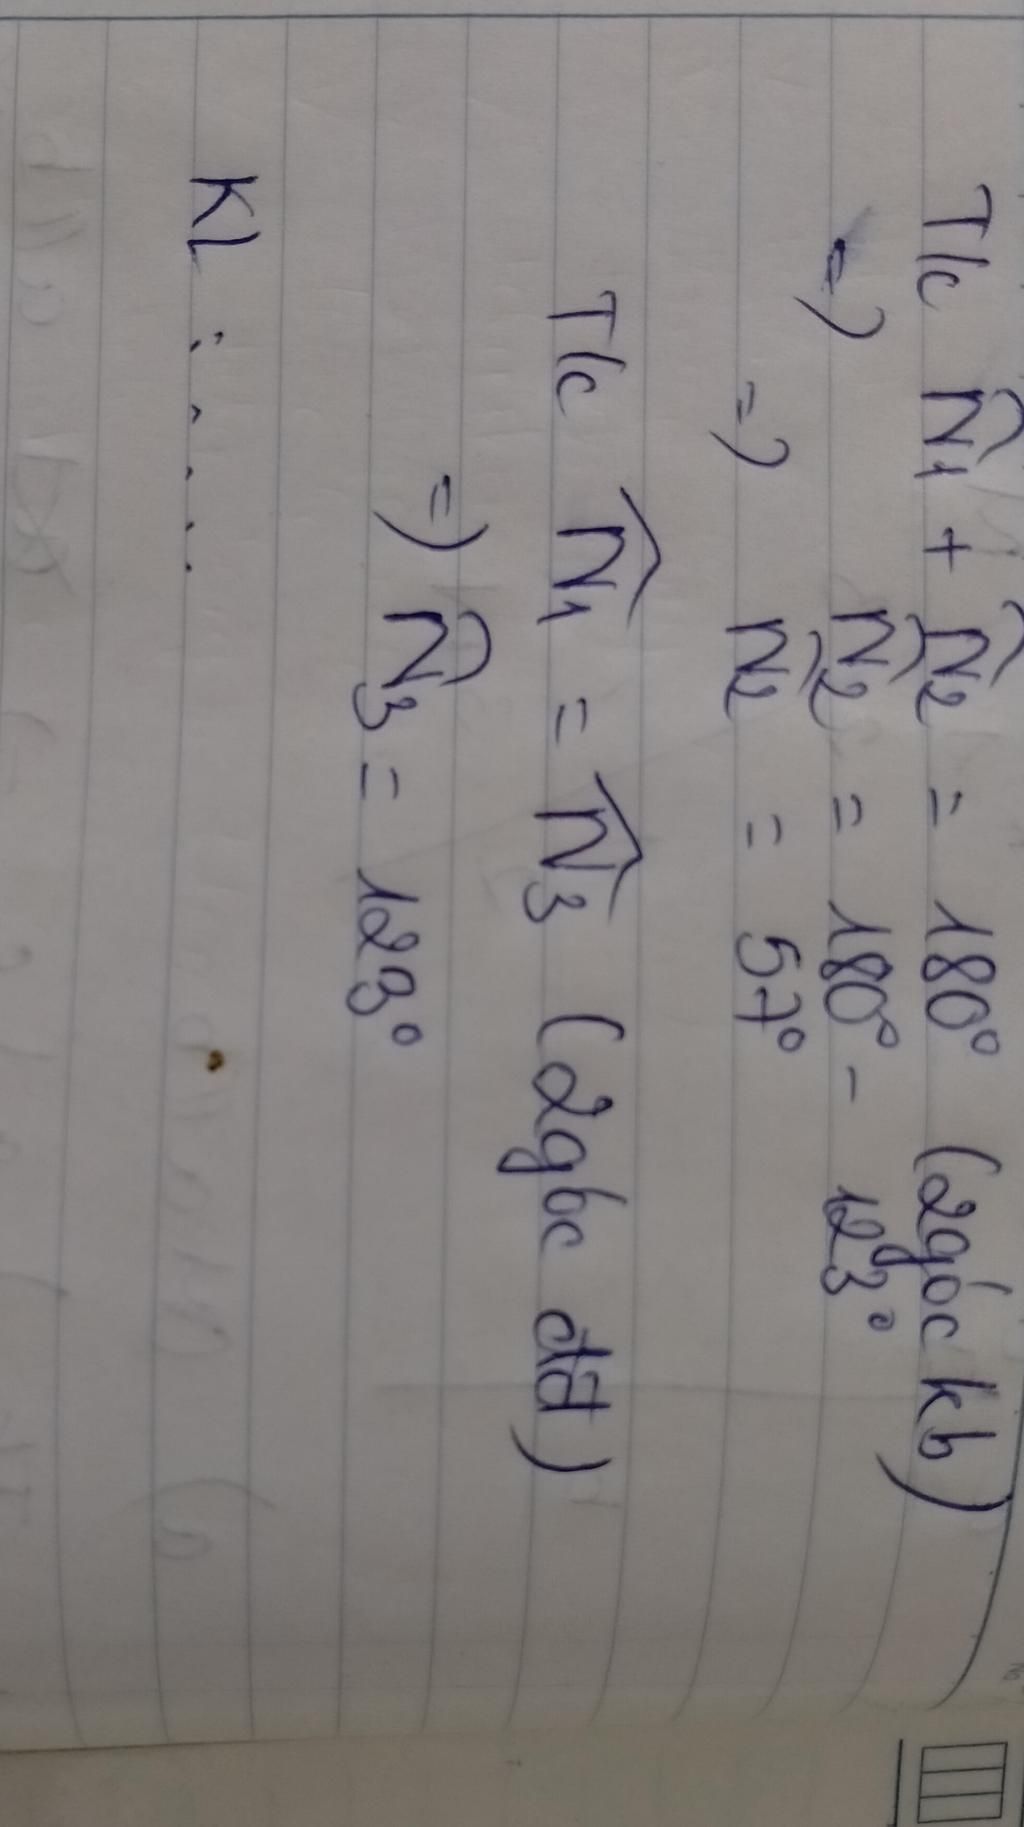 T/c N̂1 + N̂2 = 180° (2góc kb)
=) N̂2 = 180° - 123°
=) N̂2 = 57°
T/c N̂1 = N̂3 (2góc dd)
=) N̂3 = 123°
KL : . . . .